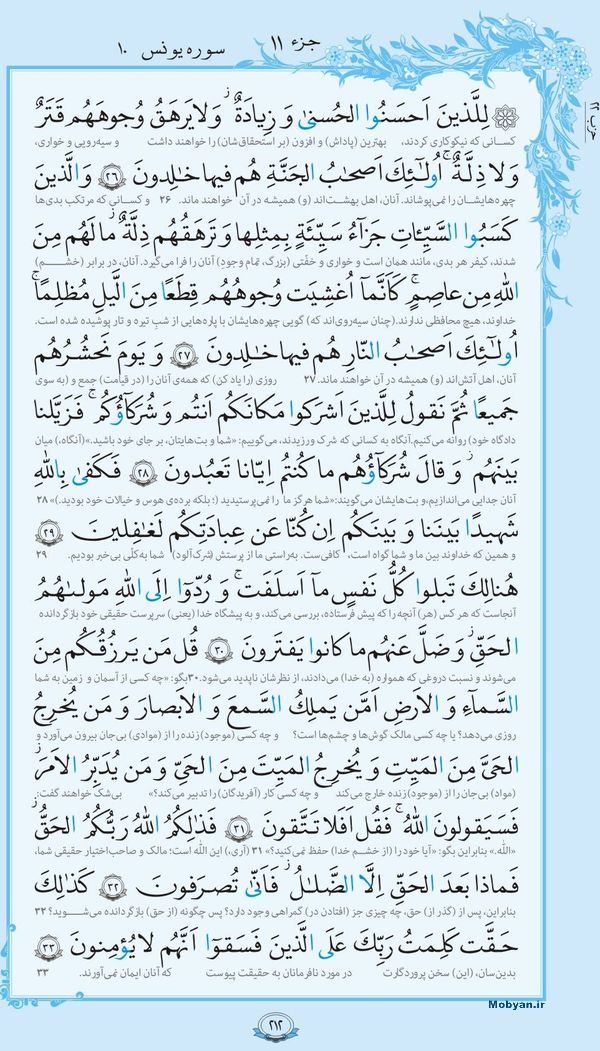 جزء ۱۱
سوره یونس ۱۰
حزب ۲۲
لِلَّذينَ اَحسَنُوا الحُسنىٰ وَ زِيادَةٌ ۖ وَلا يَرهَقُ وُجوهَهُم قَتَرٌ
کسانی که نیکوکاری کردند، بهترین (پاداش) و افزون (بر استحقاق‌شان) را خواهند داشت و سیه‌رویی و خواری،
وَلا ذِلَّةٌ ۚ اُولٰئِكَ اَصحابُ الجَنَّةِ هُم فيها خالِدونَ ﴿۲۶﴾ وَ الَّذينَ
چهره‌هایشان را نمی‌پوشاند. آنان، اهل بهشت‌اند (و) همیشه در آن خواهند ماند. ۲۶ و کسانی که مرتکب بدی‌ها
كَسَبُوا السَّيِّئاتِ جَزآءُ سَيِّئَةٍ بِمِثلِها وَ تَرهَقُهُم ذِلَّةٌ ۖ ما لَهُم مِنَ
شدند، کیفر هر بدی، مانند همان است و خواری و خفّتی (بزرگ، تمام وجودِ) آنان را فرا می‌گیرد. آنان، در برابر (خشم)
اللهِ مِن عاصِمٍ ۖ كَاَنَّمآ اُغشِيَت وُجوهُهُم قِطَعًا مِنَ الَّيلِ مُظلِمًا ۚ
خداوند، هیچ محافظی ندارند. (چنان سیه‌روی‌اند که) گویی چهره‌هایشان با پاره‌هایی از شبِ تیره و تار پوشیده شده است.
اُولٰئِكَ اَصحابُ النّارِ هُم فيها خالِدونَ ﴿۲۷﴾ وَ يَومَ نَحشُرُهُم
آنان، اهل آتش‌اند (و) همیشه در آن خواهند ماند. ۲۷ روزی (را یاد کن) که همه‌ی آنان را (در قیامت) جمع و (به سوی
جَميعًا ثُمَّ نَقولُ لِلَّذينَ اَشرَكوا مَكانَكُم اَنتُم وَ شُرَكآؤُكُم ۚ فَزَيَّلنا
دادگاه خود) روانه می‌کنیم. آنگاه به کسانی که شرک ورزیدند، می‌گوییم: «شما و بت‌هایتان، بر جای خود باشید.» (آنگاه،) میان
بَينَهُم ۖ وَ قالَ شُرَكآؤُهُم ما كُنتُم اِيّانا تَعبُدونَ ﴿۲۸﴾ فَكَفىٰ بِاللهِ
آنان جدایی می‌اندازیم، و بت‌هایشان می‌گویند: «شما هرگز ما را نمی‌پرستیدید (؛ بلکه برده‌ی هوس و خیالات خود بودید.)» ۲۸
شَهيدًا بَينَنا وَ بَينَكُم اِن كُنّا عَن عِبادَتِكُم لَغافِلينَ ﴿۲۹﴾
و همین که خداوند بین ما و شما گواه است، کافی‌ست. به‌راستی ما از پرستش (شرک‌آلود) شما به‌کلّی بی‌خبر بودیم. ۲۹
هُنالِكَ تَبلوا كُلُّ نَفسٍ مآ اَسلَفَت ۚ وَ رُدّوٓا اِلَى اللهِ مَولىٰهُمُ
آنجاست که هر کس (هر) آنچه را که پیش فرستاده، بررسی می‌کند، و به پیشگاه خدا (یعنی) سرپرست حقیقی خود بازگردانده
الحَقِّ ۖ وَ ضَلَّ عَنهُم ما كانوا يَفتَرونَ ﴿۳۰﴾ قُل مَن يَرزُقُكُم مِنَ
می‌شوند و نسبت دروغی که همواره (به خدا) می‌دادند، از نظرشان ناپدید می‌شود. ۳۰ بگو: «چه کسی از آسمان و زمین به شما
السَّمآءِ وَ الاَرضِ اَمَّن يَملِكُ السَّمعَ وَ الاَبصارَ وَ مَن يُخرِجُ
روزی می‌دهد؟ یا چه کسی مالک گوش‌ها و چشم‌ها است؟ و چه کسی (موجودِ) زنده را از (موادی) بی‌جان بیرون می‌آورد و
الحَىَّ مِنَ المَيِّتِ وَ يُخرِجُ المَيِّتَ مِنَ الحَىِّ وَ مَن يُدَبِّرُ الاَمرَ ۚ
(مواد) بی‌جان را از (موجود) زنده خارج می‌کند و چه کسی کار (آفریدگان) را تدبیر می‌کند؟» بی‌شک خواهند گفت:
فَسَيَقولونَ اللهُ ۚ فَقُل اَفَلا تَتَّقونَ ﴿۳۱﴾ فَذٰلِكُمُ اللهُ رَبُّكُمُ الحَقُّ ۖ
«الله.» بنابراین بگو: «آیا خود را (از خشم خدا) حفظ نمی‌کنید؟» ۳۱ (آری،) این الله است؛ مالک و صاحب‌اختیار حقیقی شما،
فَماذا بَعدَ الحَقِّ اِلَّا الضَّلالُ ۖ فَاَنّىٰ تُصرَفونَ ﴿۳۲﴾ كَذٰلِكَ
بنابراین، پس از (گذر از) حق، چه چیزی جز (افتادن در) گمراهی وجود دارد؟ پس چگونه (از حق) بازگردانده می‌شوید؟ ۳۲
حَقَّت كَلِمَتُ رَبِّكَ عَلَى الَّذينَ فَسَقوٓا اَنَّهُم لا يُؤمِنونَ ﴿۳۳﴾
بدین‌سان، (این) سخن پروردگارت در مورد نافرمانان به حقیقت پیوست که آنان ایمان نمی‌آورند. ۳۳
۲۱۲
Mobyan.ir